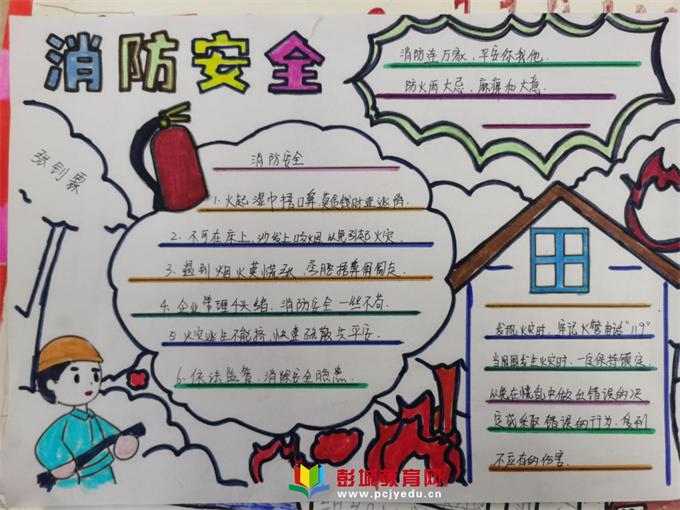 消防安全
消防连万家，平安你我他.
防火两大忌，麻痹和大意.
张钊霖
消防安全
1. 火起湿巾捂口鼻，莫贪钱财速逃
2. 不可在床上，沙发上吸烟 以免引起火灾.
3. 遇到烟火莫慌张，
4. 企业管理千头绪，消防安全一些不苟.
5 火灾逃生不能挤，快速疏散
6. 依法监管、消除安全隐患.
发现火灾时，牢记火警电话"119"
当周围发生火灾时，一定保持镇定
以免在慌乱中做出错误的决
定或采取错误的行为，受到
不应有的伤害.
彭城教育网
www.pcjyedu.cn